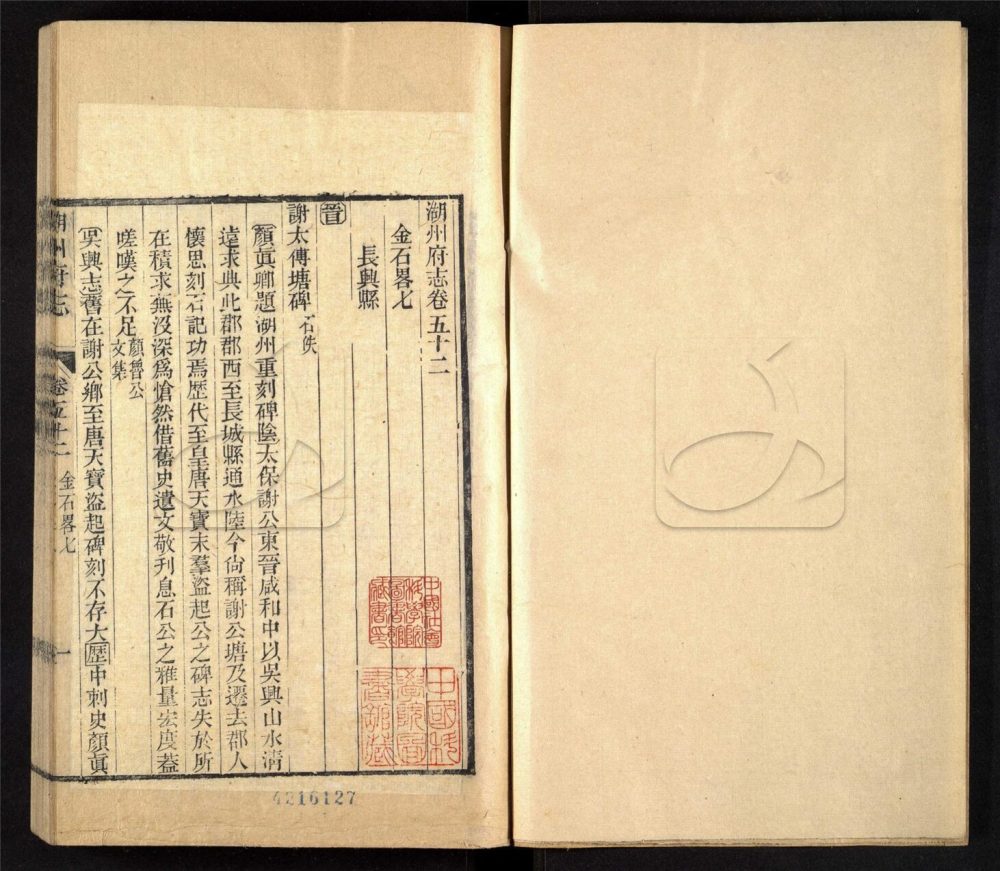 湖州府志卷五十二
金石畧七
長興縣
晉
謝太傅塘碑 石佚
顏眞卿題湖州重刻碑陰太保謝公東晉咸和中以吳興山水清
遠求典此郡郡西至長城縣通水陸今尙稱謝公塘及遷去郡人
懷思刻石記功焉歷代至皇唐天寶末羣盜起公之碑志失於所
在積求無沒深爲愴然借舊史遺文敬刋息石公之雅量宏度蓋
嗟嘆之不足 顏魯公
文集
吳興志舊在謝公鄉至唐天寶盜起碑刻不存大歷中刺史顏眞
湖州府志
卷五十二
金石畧七
一
中國社會
科學院
圖書館
藏書印
中國科
學院圖
書館藏
4216127